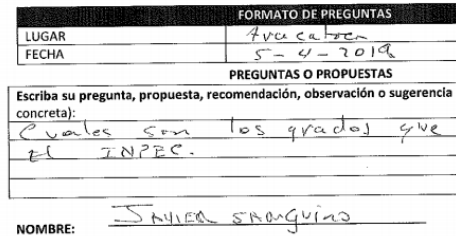 FORMATO DE PREGUNTAS
LUGAR
FECHA 5-4-2019
PREGUNTAS O PROPUESTAS
Escriba su pregunta, propuesta, recomendación, observación o sugerencia
concreta):
Cuales son los grados que
el INPEC.
NOMBRE: JAVIER SANGUINO